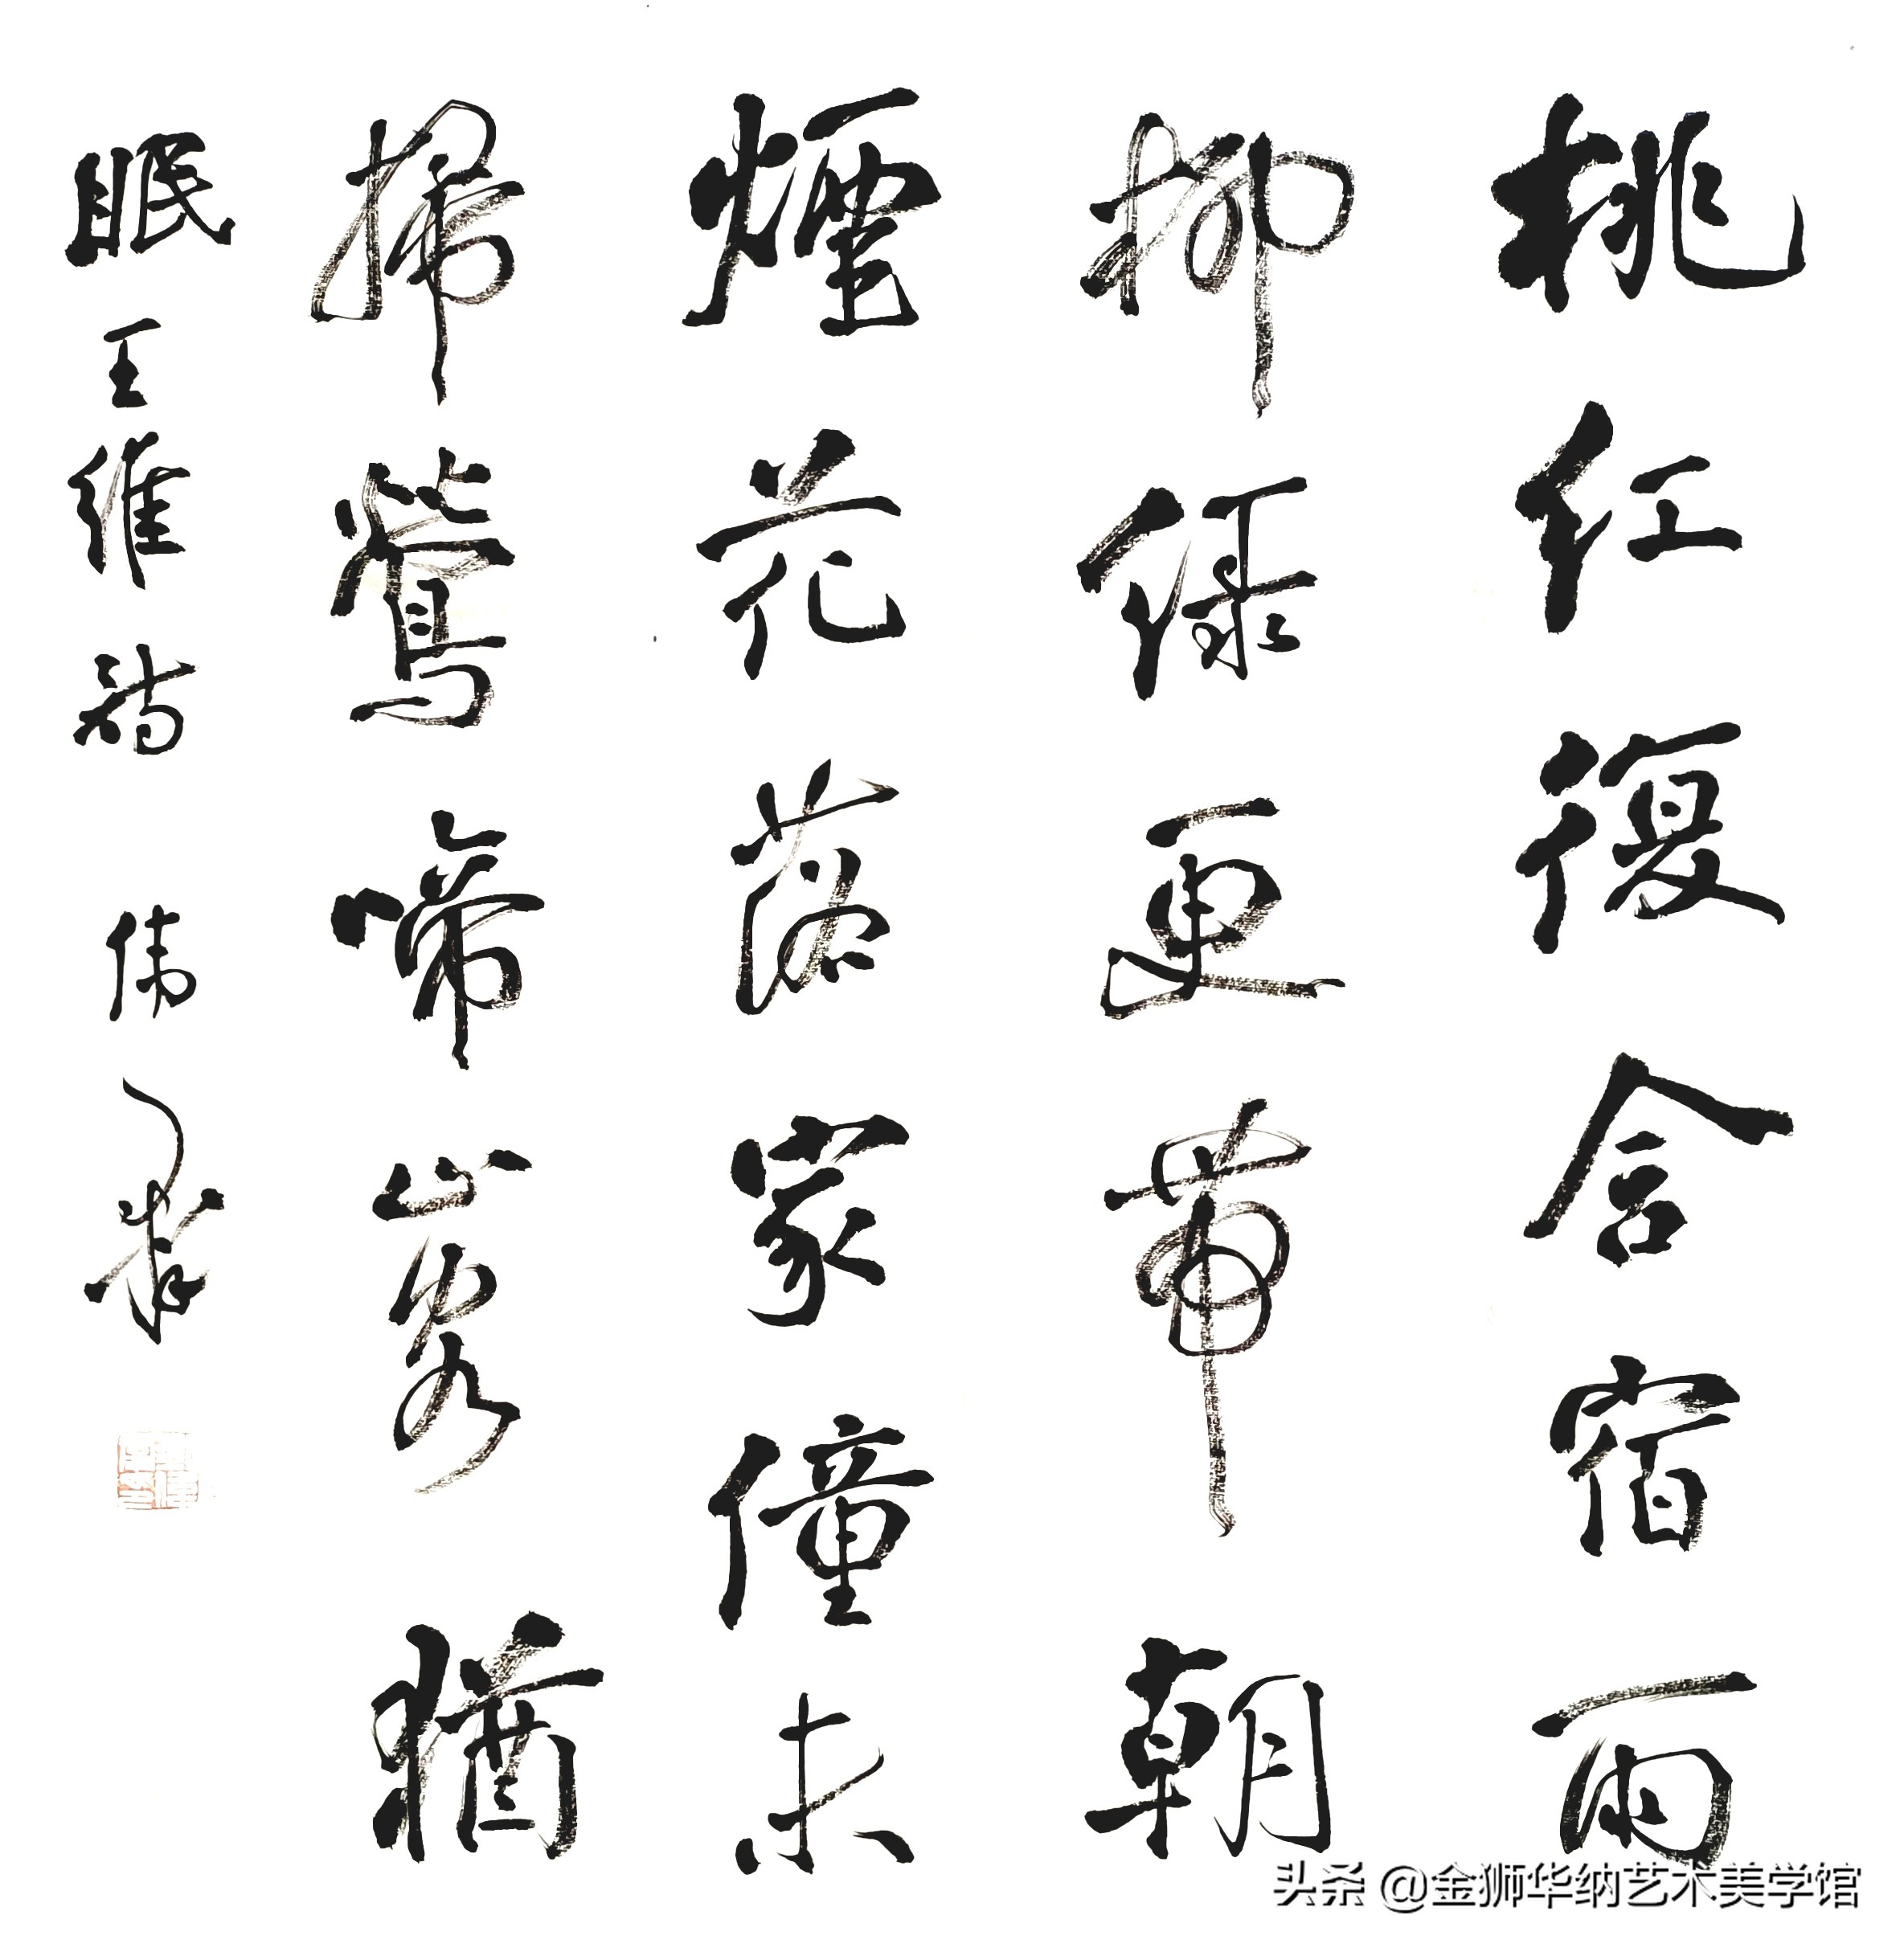 桃红復含宿雨
柳绿更帶朝
煙花落家僮未
掃鶯啼山客猶
眠王维诗 伟
头条 @金狮华纳艺术美学馆